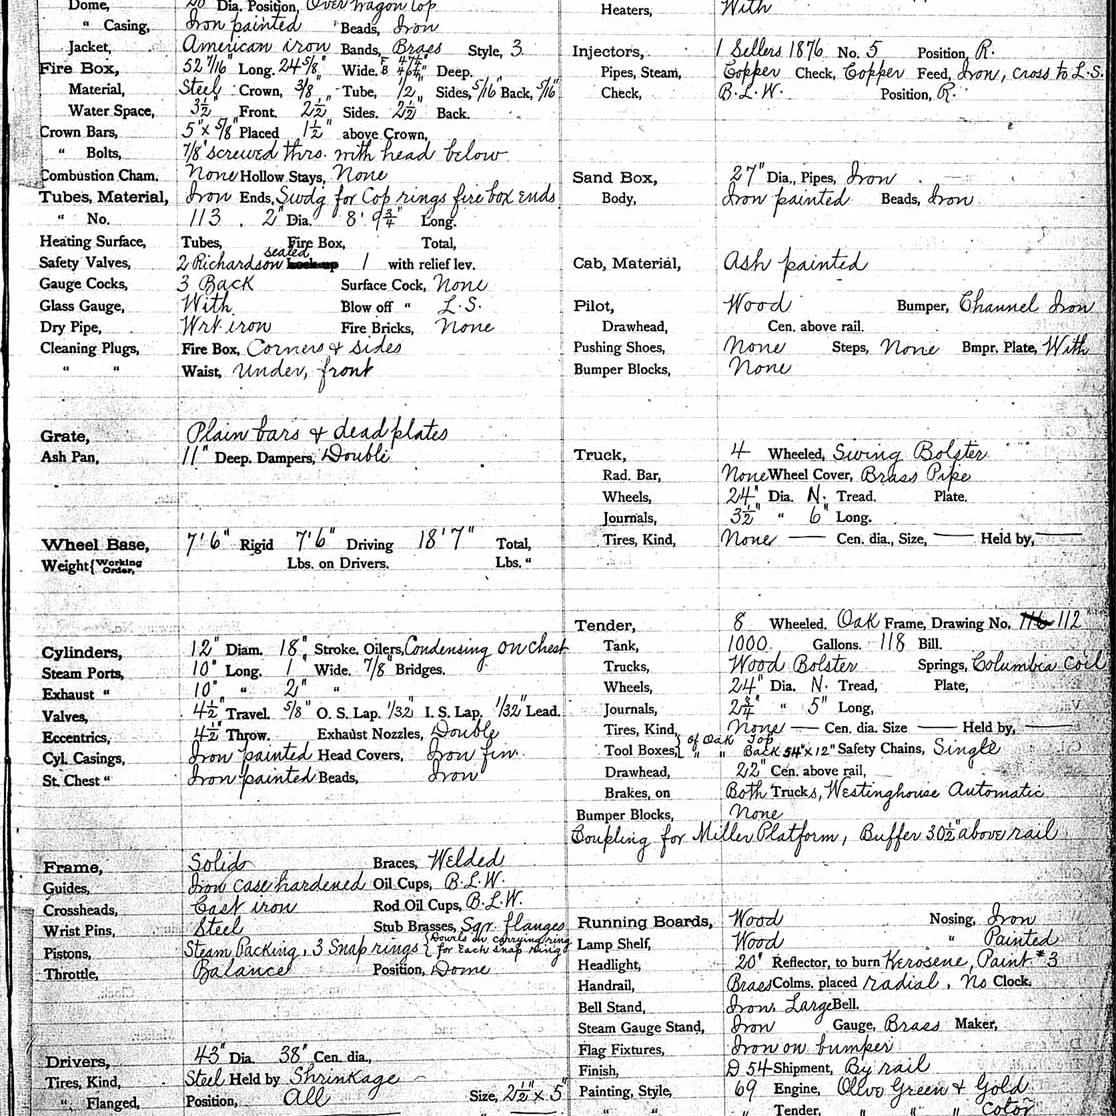 Dome, 20" Dia. Position, Over wagon top
" Casing, Iron painted Beads, Iron
Jacket, American iron Bands, Brass Style, 3
Fire Box, 52 7/16" Long. 24 5/8" Wide. F B Deep.
Material, Steel Crown, 3/8" Tube, 1/2" Sides, 5/16" Back, 5/16"
Water Space, 3 1/2" Front. 2 1/2" Sides. 2 1/2" Back.
Crown Bars, 5" x 5/8" Placed 1 1/2" above Crown,
" Bolts, 7/8" screwed thro. with head below
Combustion Cham. None Hollow Stays, None
Tubes, Material, Iron Ends, Swdg for Cop rings fire box ends
" No. 113. 2" Dia. 8' 9 3/4" Long.
Heating Surface, Tubes, Fire Box, Total,
Safety Valves, 2 Richardson sealed Lock-up 1 with relief lev.
Gauge Cocks, 3 Back Surface Cock, None
Glass Gauge, With Blow off " L.S.
Dry Pipe, Wrt iron Fire Bricks, None
Cleaning Plugs, Fire Box, Corners & sides
" " Waist, Under, front
Grate, Plain bars & dead plates
Ash Pan, 11" Deep. Dampers, Double
Wheel Base, 7' 6" Rigid 7' 6" Driving 18' 7" Total,
Weight { Working Order, Lbs. on Drivers. Lbs. "
Cylinders, 12" Diam. 18" Stroke. Oilers, Condensing on chest
Steam Ports, 10" Long. 1" Wide. 7/8" Bridges.
Exhaust " 10" " 2" "
Valves, 4 1/2" Travel. 5/8" O. S. Lap. 1/32" I. S. Lap. 1/32" Lead.
Eccentrics, 4 1/2" Throw. Exhaust Nozzles, Double
Cyl. Casings, Iron painted Head Covers, Iron fin.
St. Chest " Iron painted Beads, Iron
Frame, Solid Braces, Welded
Guides, Iron case hardened Oil Cups, B.L.W.
Crossheads, Cast iron Rod Oil Cups, B.L.W.
Wrist Pins, Steel Stub Brasses, Sqr. flanges
Pistons, Steam Packing, 3 Snap rings { Dowels on carrying ring for each snap ring
Throttle, Balance Position, Dome
Drivers, 43" Dia. 38" Cen. dia.,
Tires, Kind, Steel Held by Shrinkage
" Flanged, Position, All Size, 2 1/2" x 5"
Heaters, With
Injectors, 1 Sellers 1876 No. 5 Position, R.
Pipes, Steam, Copper Check, Copper Feed, Iron, cross to L.S.
Check, B.L.W. Position, R.
Sand Box, 27" Dia., Pipes, Iron
Body, Iron painted Beads, Iron
Cab, Material, Ash painted
Pilot, Wood Bumper, Channel Iron
Drawhead, Cen. above rail.
Pushing Shoes, None Steps, None Bmpr. Plate, With
Bumper Blocks, None
Truck, 4 Wheeled, Swing Bolster
Rad. Bar, None Wheel Cover, Brass Pipe
Wheels, 24" Dia. N. Tread. Plate.
Journals, 3 1/2" " 6" Long.
Tires, Kind, None — Cen. dia., Size, — Held by, —
Tender, 8 Wheeled, Oak Frame, Drawing No. 116 112
Tank, 1000 Gallons. 118 Bill.
Trucks, Wood Bolster Springs, Columbia coil
Wheels, 24" Dia. N. Tread, Plate,
Journals, 2 3/4" " 5" Long,
Tires, Kind, None — Cen. dia. Size — Held by, —
Tool Boxes, { of Oak Top " " Back 54" x 12" Safety Chains, Single
Drawhead, 22" Cen. above rail,
Brakes, on Both Trucks, Westinghouse Automatic
Bumper Blocks, None
Coupling for Miller Platform, Buffer 30 1/2" above rail
Running Boards, Wood Nosing, Iron
Lamp Shelf, Wood " Painted
Headlight, 20" Reflector, to burn Kerosene, Paint #3
Handrail, Brass Colms. placed radial, No Clock.
Bell Stand, Iron, Large Bell.
Steam Gauge Stand, Iron Gauge, Brass Maker,
Flag Fixtures, Iron on bumper
Finish, D 54 Shipment, By rail
Painting, Style, 69 Engine, Olive Green & Gold
" " " Tender, " " " Color